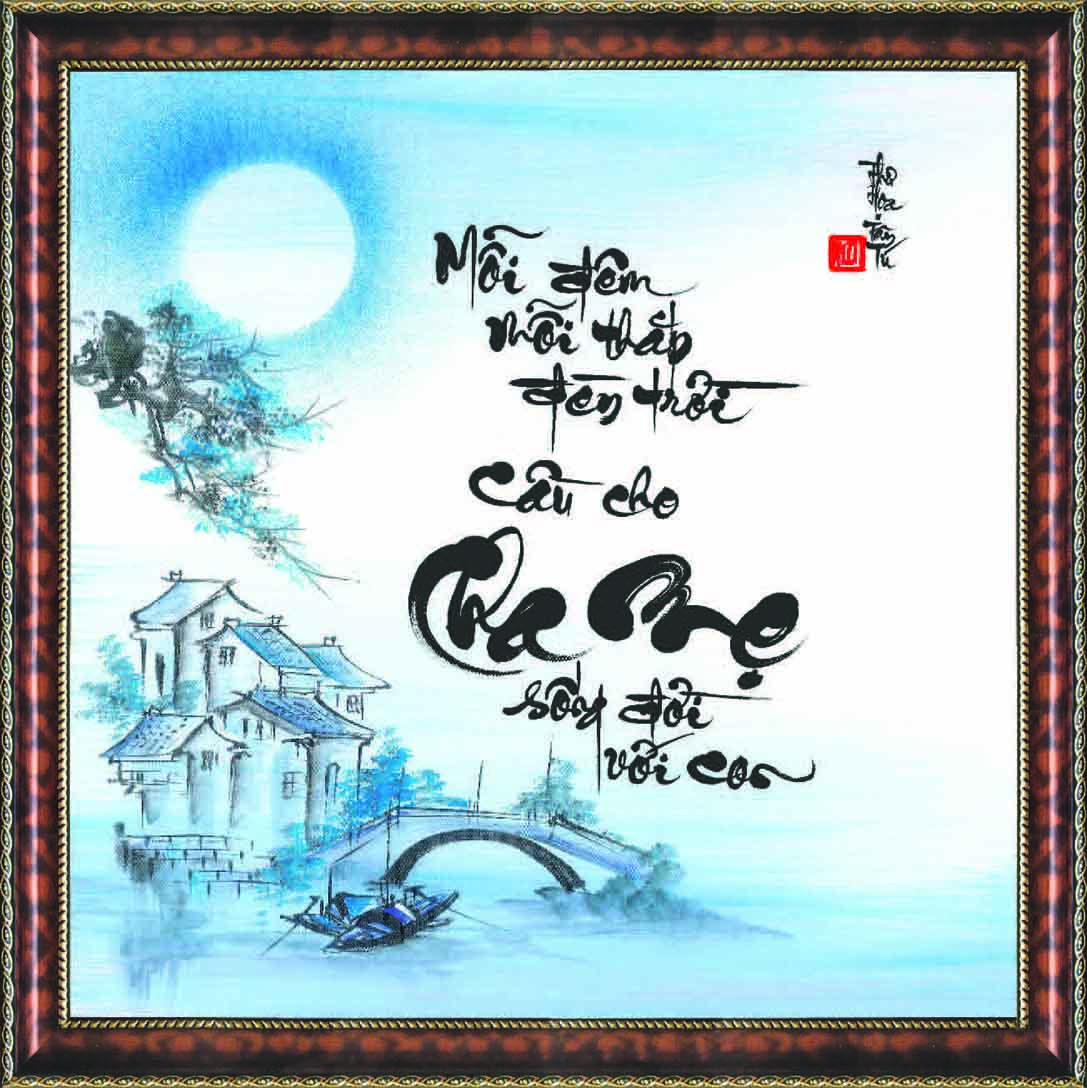 Mỗi đêm
mỗi thắp
đèn trời
cầu cho
Cha Mẹ
sống đời
với con
Thơ
Họa
Tú